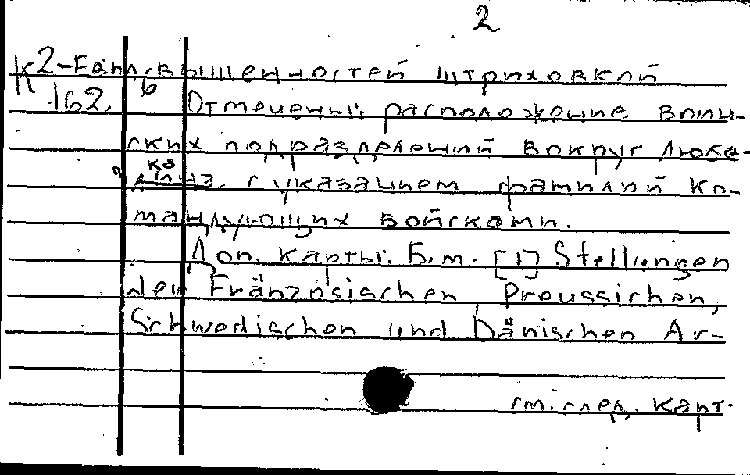 2
К2-Евпл.6 возвышенностей штриховкой
162.
Отмечены: расположение воин-
ских подразделений вокруг Любе-
ка, с указанием фамилий ко-
мандующих войсками.
Доп. карты. Б.м. [1] Stellungen
der Französischen, Preussichen,
Schwedischen und Dänischen Ar-
см. след. карт.